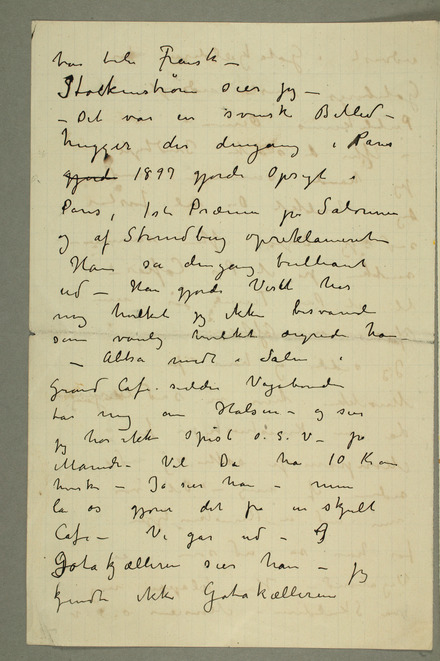 bare tale Fransk –
Stolkenström sier jeg –
– Det var en svensk Billed –
hugger der dengang i Paris
gjorde 1897 gjorde Opsigt i
Paris, 1ste Præmie på Salonen
og af Strindberg opreklameret
Han så dengang brilliant
ud – Han gjorde Visit hos
mig hvilket jeg ikke besvarede
som vanlig hvilket ærgrede ham –
– Altså midt i Salen i
Grand Café sidder Vagabonden
tar mig om Halsen – og sier
jeg har ikke spist o.s.v. – på
Vil Da ha 10 Kroner
– Ja sier han – men
la os gjøre det på en skjult
Café – Vi går ud –
Gotakjælleren sier han – jeg
kjendte ikke Gotakjælleren